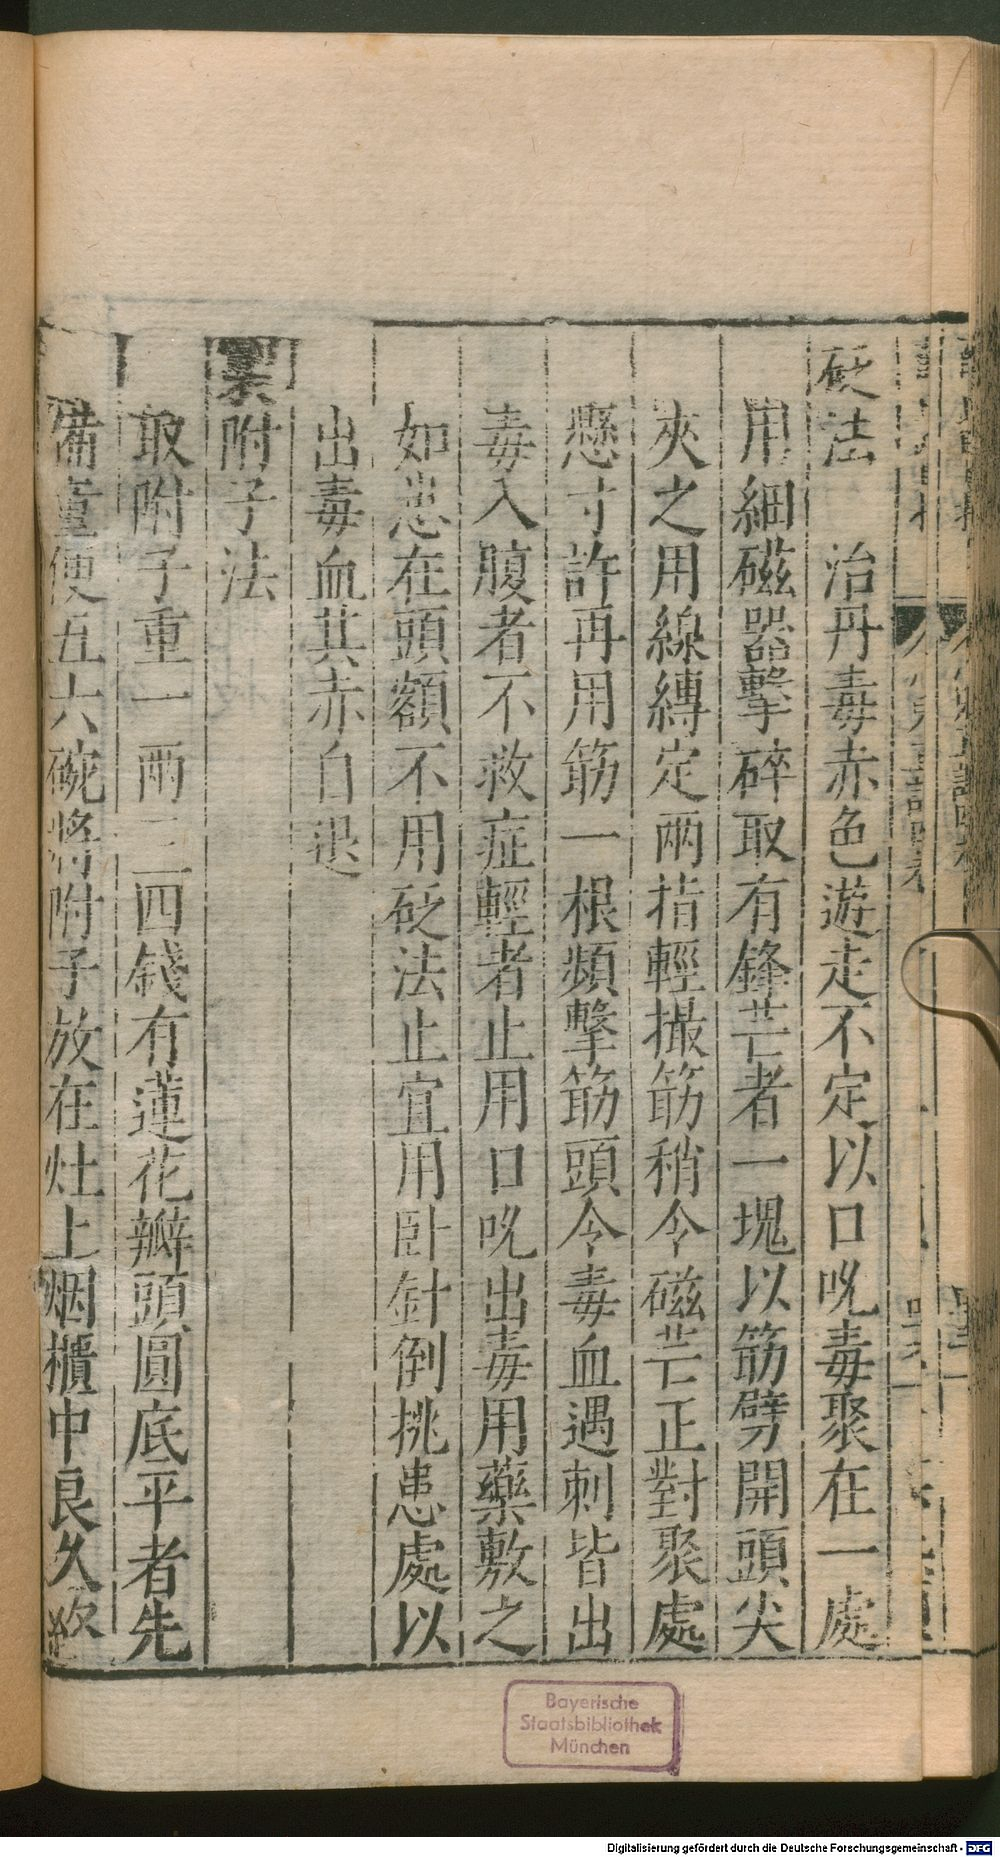 砭法　治丹毒赤色遊走不定以口吮毒聚在一處
用細磁器擊碎取有鋒芒者一塊以筯劈開頭尖
夾之用線縛定兩指輕撮筯稍令磁芒正對聚處
懸寸許再用筯一根頻擊筯頭令毒血遇刺皆出
毒入腹者不救症輕者止用口吮出毒用藥敷之
如患在頭額不用砭法止宜用卧針倒挑患處以
出毒血其赤自退
製附子法
取附子重一兩三四錢有蓮花瓣頭圓底平者先
備童便五六碗將附子放在灶上烟櫃中良久
Bayerische
Staatsbibliothek
München
Digitalisierung gefördert durch die Deutsche Forschungsgemeinschaft - DFG